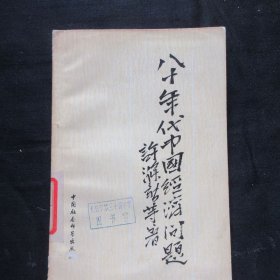 八十年代中國經濟問題
許滌新等著
中国社会科学出版社
图书室